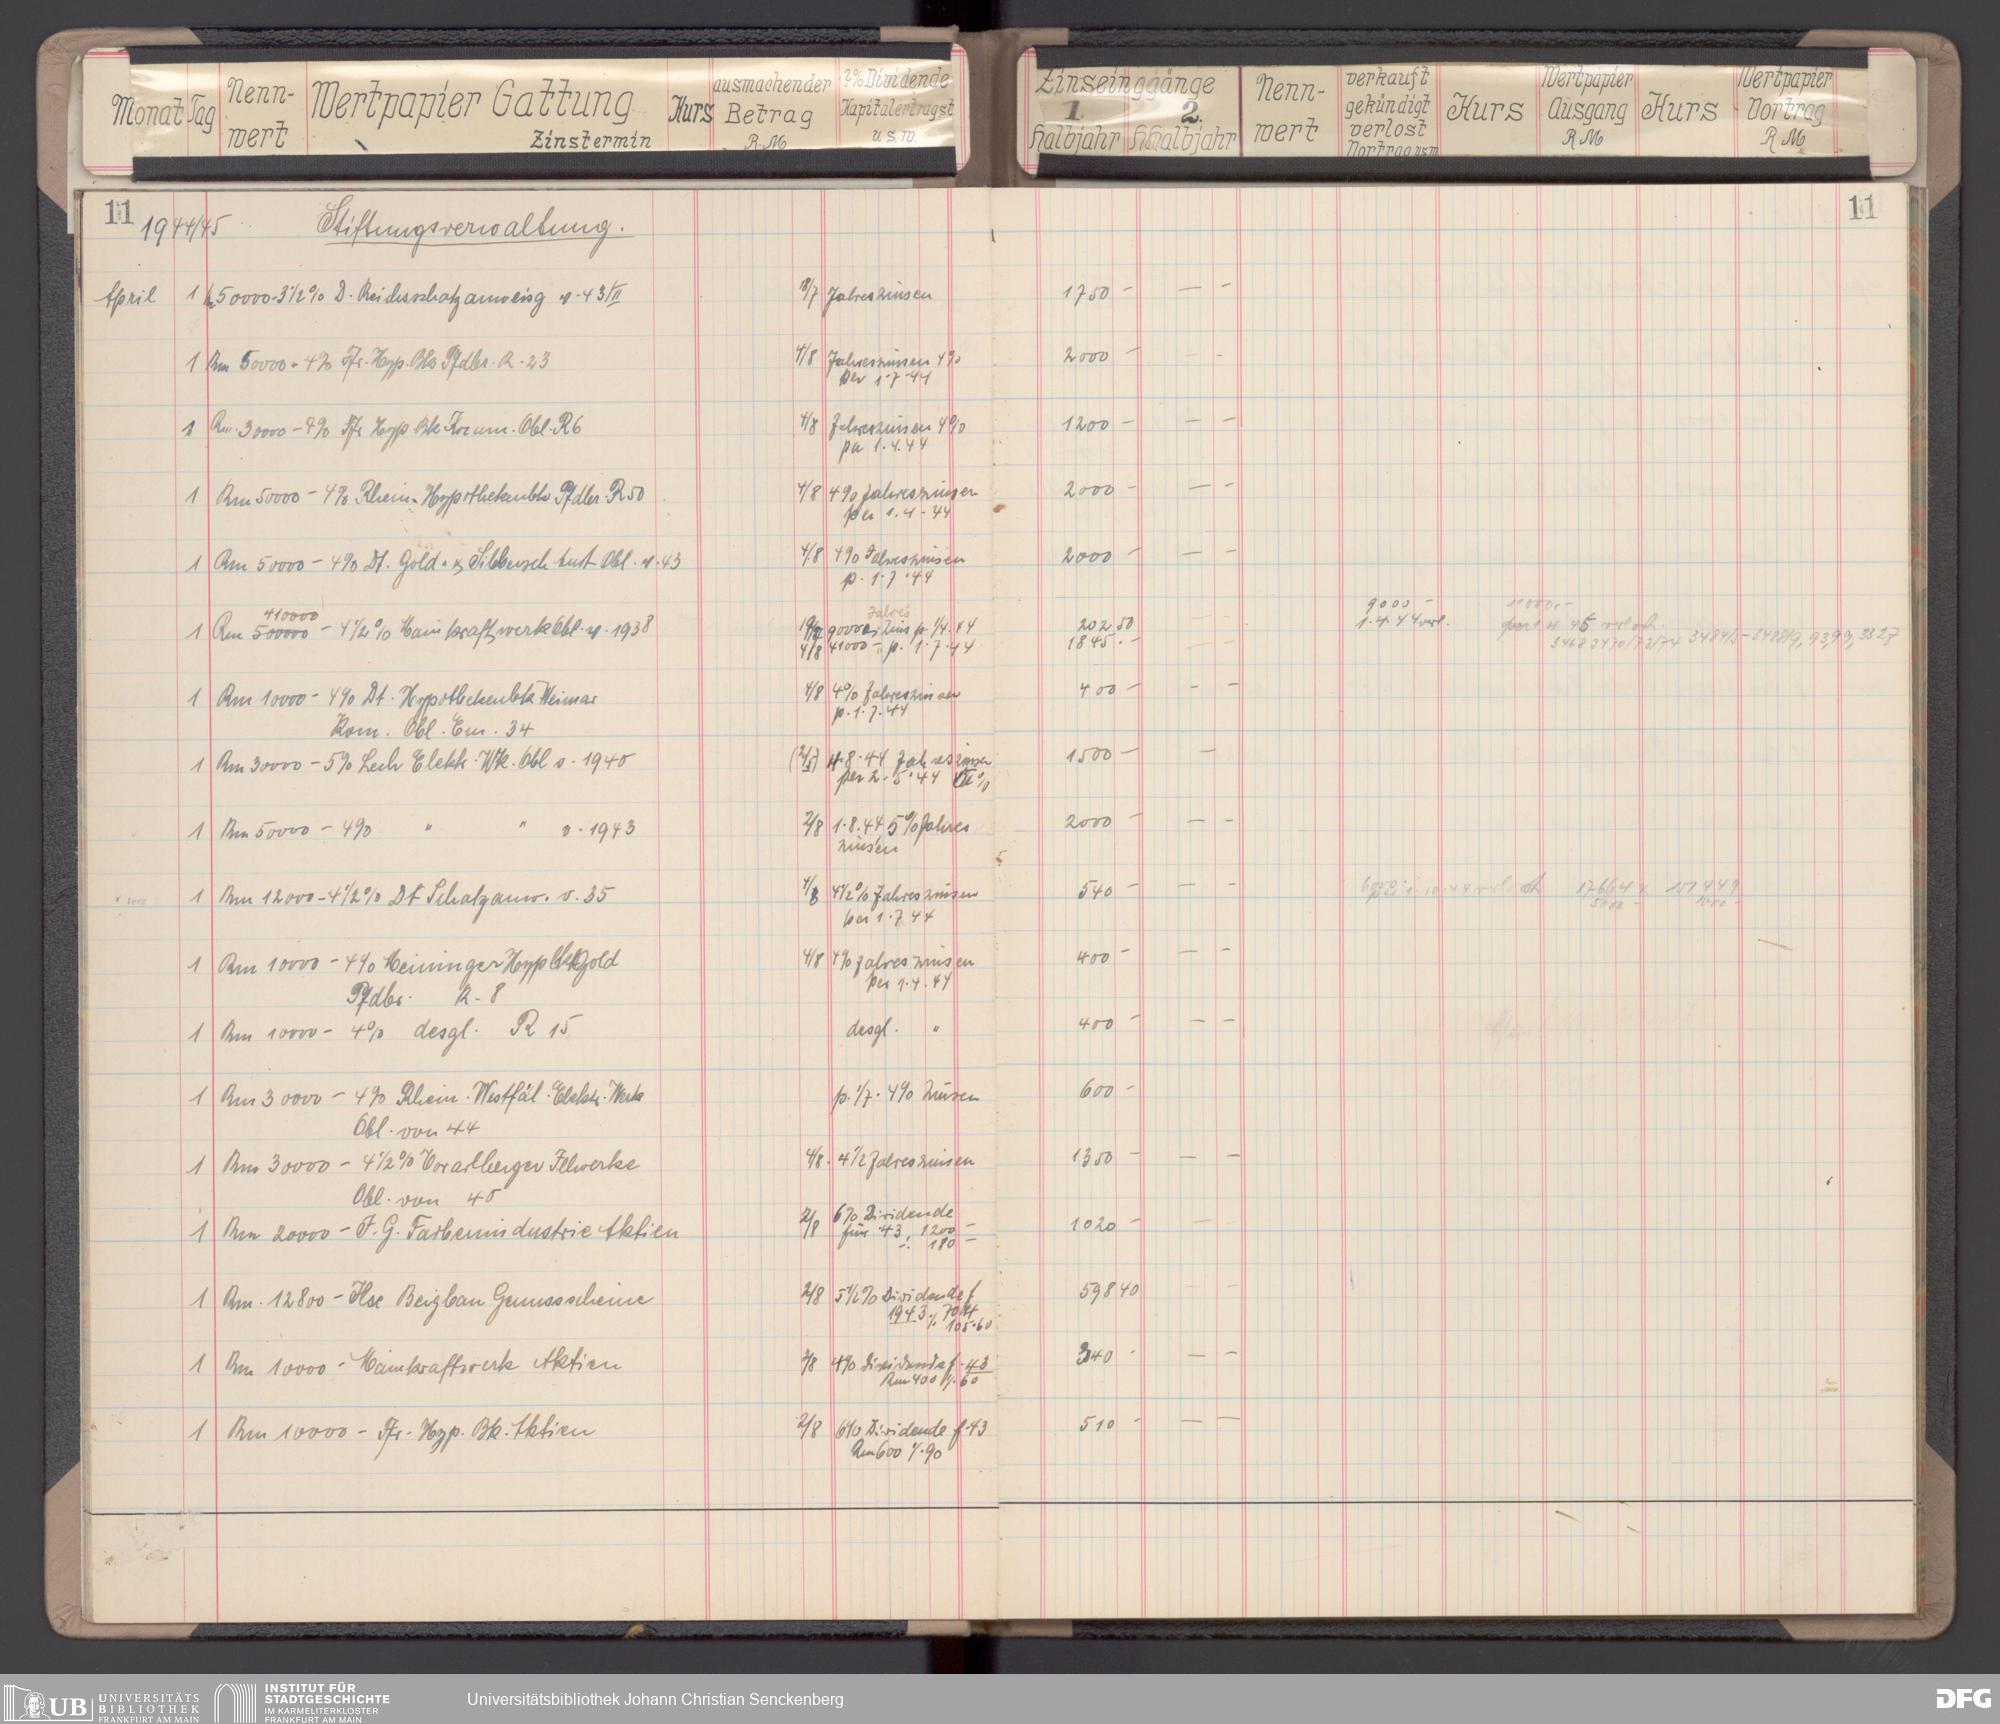 Monat Tag Nennwert Wertpapier Gattung Zinstermin Kurs ausmachender Betrag R.M 2% Dividende Kapitalertragst usw.
Zinseinggänge 1. Halbjahr 2. Halbjahr Nennwert verkauft gekündigt verlost Vortrag usw Kurs Wertpapier Ausgang RM Kurs Wertpapier Vortrag RM
11 11
1944/45 Stiftungsverwaltung.
April 1 50000.-3½% D. Reichsschatzanweisg v. 43/II 18/7 Jahreszinsen 1750 - — -
1 Rm 50000.- 4% Fr. Hyp. Bk Pfdbr. R. 23 4/8 Jahreszinsen 4% 2000 -
per 1.7.44
1 Rm. 30000 - 4% Fr Hyp Bk Komm. Obl. R6 4/8 Jahreszinsen 4% 1200 - — -
per 1.4.44
1 Rm 50000 - 4% Rhein. Hypothekenbk Pfdbr. R 50 4/8 4% Jahreszinsen 2000 - — -
per 1.4.44
1 Rm 50000 - 4% Dt. Gold- & Silbersch Anst Obl. v. 43 4/8 4% Jahreszinsen 2000 - — -
p. 1.7.44
410000 Jahres 9000 -
1 Rm 500000 - 4½% Mainkraftwerke Obl. v. 1938 9000 Zins p. 1/4.44 202 50 1.4.44 verl.
4/8 41000 - p. 1.7.44 1845.-
1 Rm 10000 - 4% Dt. Hypothekenbk Weimar 4/8 4% Jahreszinsen 400 - - -
p. 1.7.44
Kom. Obl. Em. 34
1 Rm 30000 - 5% Lech Elektr. Wk. Obl v. 1940 (2/5) 4.8.44 Jahreszinsen 1500 - —
per 2.5.44
1 Rm 50000 - 4% " " v. 1943 2/8 1.8.44 5% Jahres 2000 - — -
zinsen
1 Rm 12000 - 4½% Dt Schatzanw. v. 35 4/8 4½% Jahreszinsen 540 - — -
per 1.7.44
1 Rm 10000 - 4% Meininger Hypbk Gold 4/8 4% Jahreszinsen 400 - — -
per 1.4.44
Pfdbr. R. 8
1 Rm 10000 - 4% desgl. R 15 desgl. " 400 - — -
1 Rm 30000 - 4% Rhein. Westfäl. Elektr. Werk p. 1/7. 4% Zinsen 600 -
Obl. von 44
1 Rm 30000 - 4½% Vorarlberger Illwerke 4/8. 4½ Jahreszinsen 1350 - — -
Obl. von 40
1 Rm 20000 - I.G. Farbenindustrie Aktien 2/8 6% Dividende 1020 - —
für 43, 1200 -
./. 180 -
1 Rm. 12800 - Ilse Bergbau Genussscheine 2/8 5½% Dividende f 598 40
1943 704
./. 105.60
1 Rm 10000 - Mainkraftwerk Aktien 2/8 4% Dividende f. 43 340 - — -
Rm 400 ./. 60
1 Rm 10000 - Fr. Hyp. Bk. Aktien 2/8 6% Dividende f. 43 510 - — —
Rm 600 ./. 90
UB UNIVERSITÄTS BIBLIOTHEK FRANKFURT AM MAIN
INSTITUT FÜR STADTGESCHICHTE IM KARMELITERKLOSTER FRANKFURT AM MAIN
Universitätsbibliothek Johann Christian Senckenberg
DFG